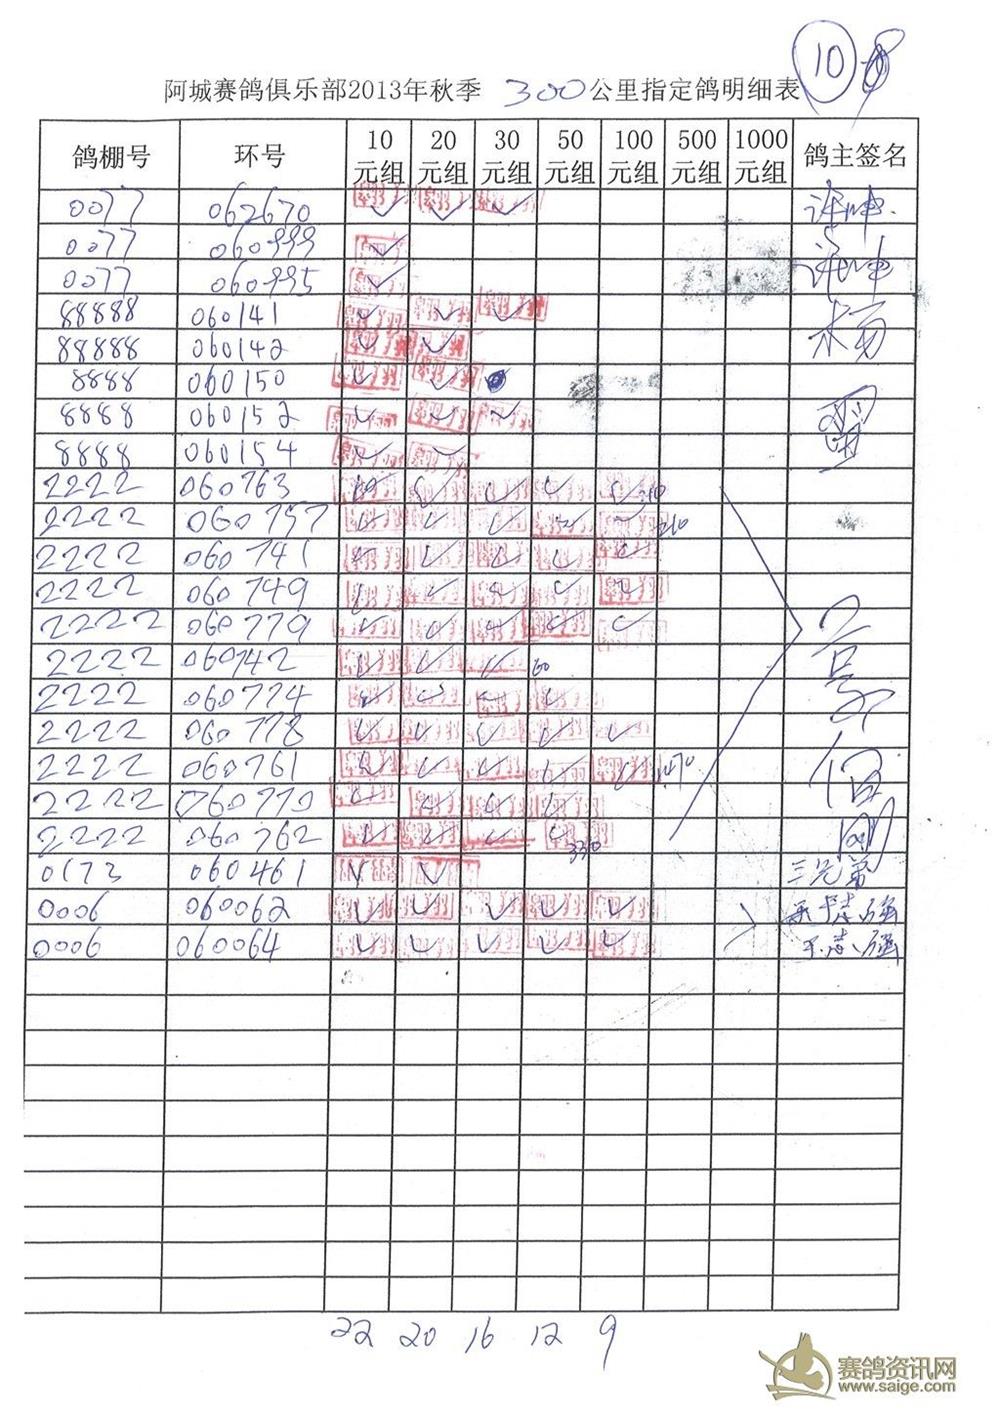 10
阿城赛鸽俱乐部2013年秋季 300公里指定鸽明细表
鸽棚号 环号 10元组 20元组 30元组 50元组 100元组 500元组 1000元组 鸽主签名
0077 062670 ✓ ✓ ✓ 许坤
0077 060999 ✓ 许坤
0077 060995 ✓
88888 060141 ✓ ✓ ✓
88888 060142 ✓ ✓
8888 060150 ✓ ✓
8888 060152 ✓ ✓ ✓
8888 060154 ✓ ✓
2222 060763 ✓ ✓ ✓ ✓ ✓
2222 060757 ✓ ✓ ✓ ✓ ✓ 210
2222 060741 ✓ ✓ ✓ ✓ ✓
2222 060749 ✓ ✓ ✓ ✓ ✓
2222 060779 ✓ ✓ ✓ ✓ ✓
2222 060742 ✓ ✓ ✓ 60
2222 060774 ✓ ✓ ✓ ✓
2222 060778 ✓ ✓ ✓ ✓ ✓
2222 060761 ✓ ✓ ✓ ✓ ✓
2222 060770 ✓ ✓ ✓ ✓
2222 060762 ✓ ✓ ✓ ✓ 330
0173 060461 ✓ ✓ 三兄弟
0006 060062 ✓ ✓ ✓ ✓ ✓
0006 060064 ✓ ✓ ✓ ✓ ✓ 于志强
22 20 16 12 9
赛鸽资讯网
www.saige.com